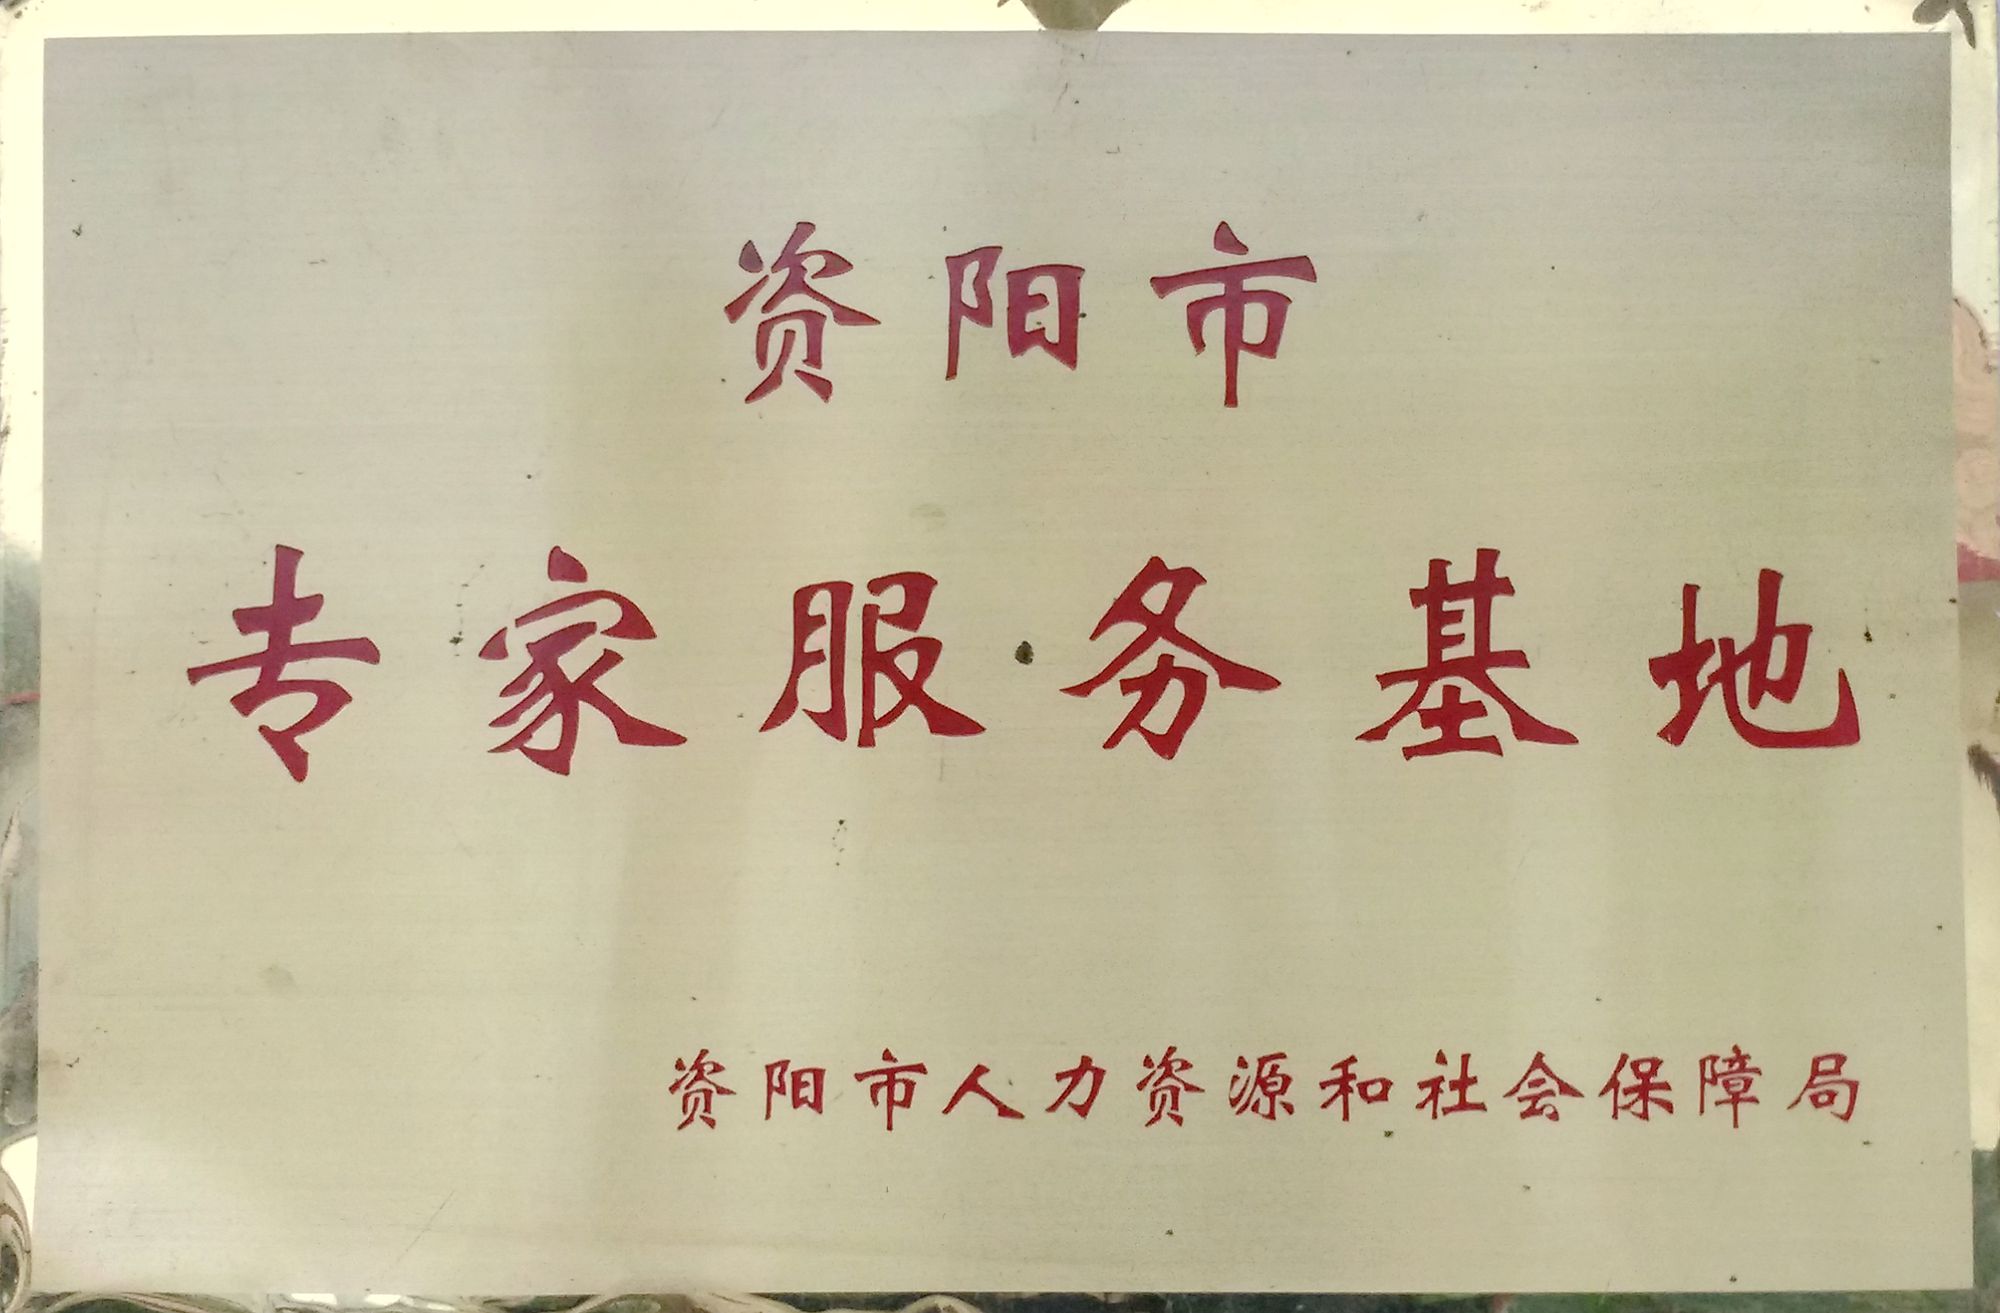 资阳市
专家服务基地
资阳市人力资源和社会保障局